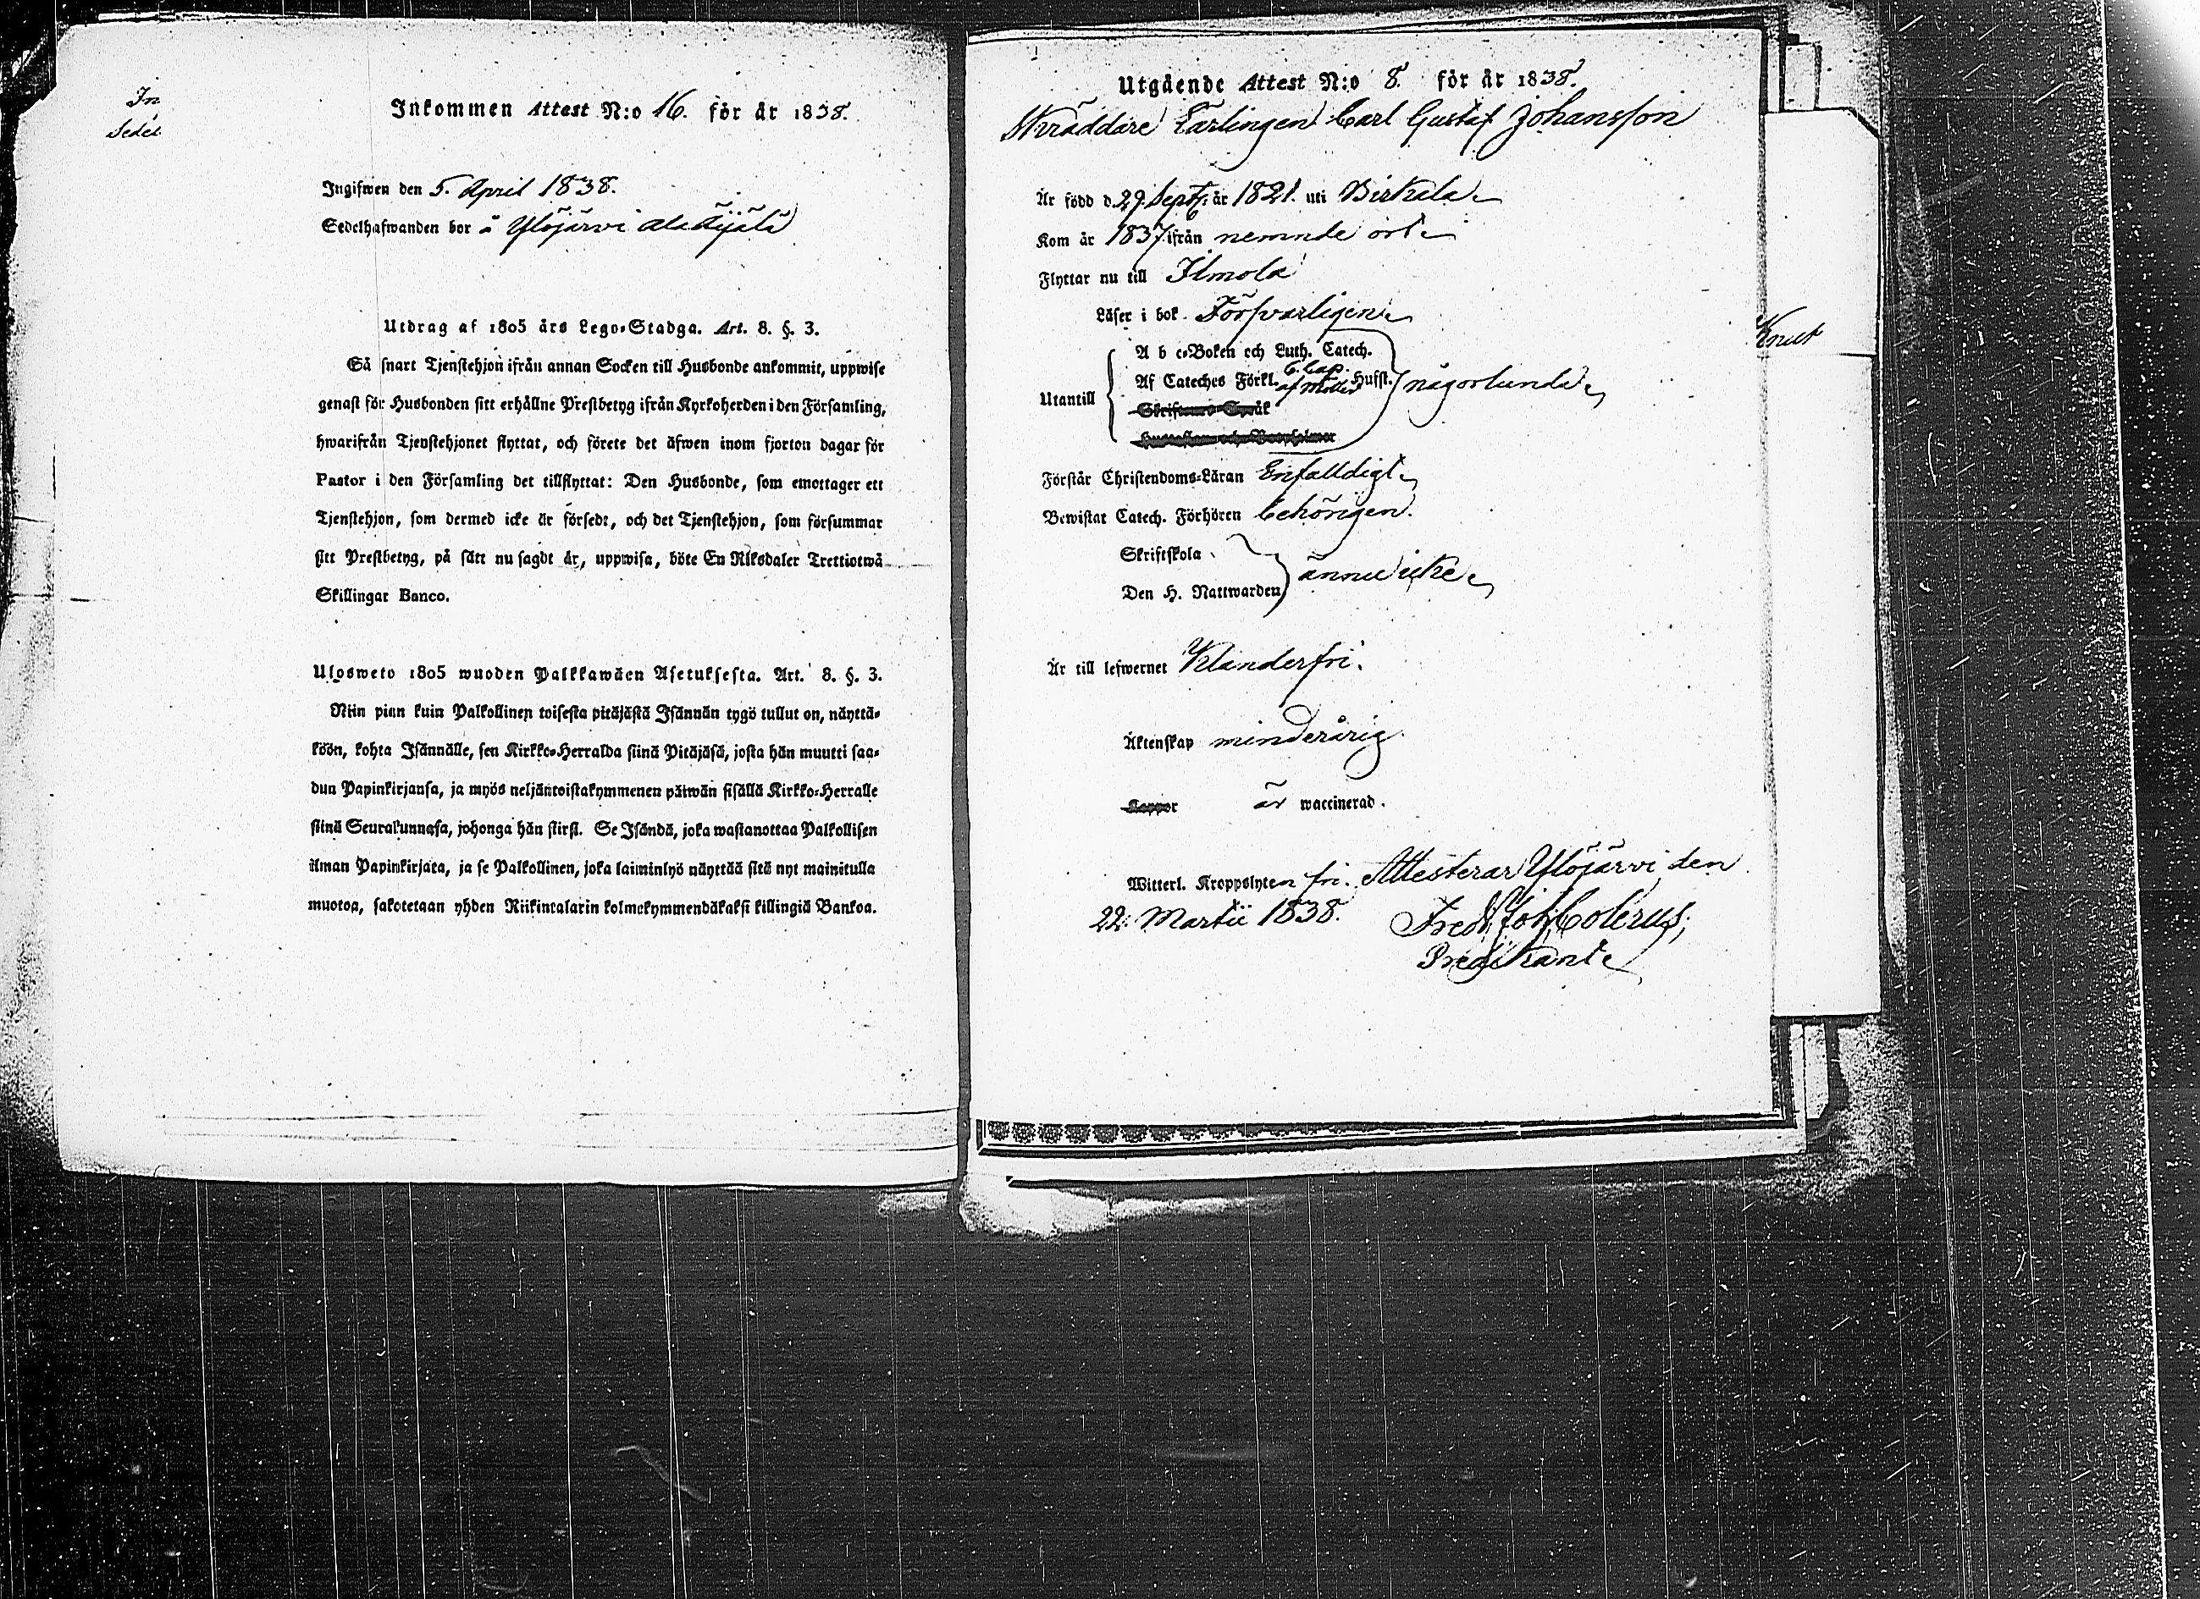 In
Sedel
Inkommen Attest N:o 16. för år 1838.
Ingifwen den 5. April 1838.
Sedelhafwanden bor å Ylöjärvi Ala Äijälä
Utdrag af 1805 års Lego-Stadga. Art. 8. §. 3.
Så snart Tjenstehjon ifrån annan Socken till Husbonde ankommit, uppwise
genast för Husbonden sitt erhållne Prestbetyg ifrån Kyrkoherden i den Församling,
hwarifrån Tjenstehjonet flyttat, och förete det äfwen inom fjorton dagar för
Pastor i den Församling det tillflyttat: Den Husbonde, som emottager ett
Tjenstehjon, som dermed icke är försedt, och det Tjenstehjon, som försummar
sitt Prestbetyg, på sätt nu sagdt är, uppwisa, böte En Riksdaler Trettiotwå
Skillingar Banco.
Ulosweto 1805 wuoden Palkkawäen Asetuksesta. Art. 8. §. 3.
Niin pian kuin Palkollinen toisesta pitäjästä Isännän tygö tullut on, näyttä-
köön, kohta Isännälle, sen Kirkko-Herralda siinä Pitäjäsä, josta hän muutti saa-
dun Papinkirjansa, ja myös neljäntoistakymmenen päiwän sisällä Kirkko-Herralle
siinä Seurakunnasa, johonga hän siirsi. Se Isändä, joka wastanottaa Palkollisen
ilman Papinkirjata, ja se Palkollinen, joka laiminlyö näyttää sitä nyt mainitulla
muotoa, sakotetaan yhden Riikintalarin kolmekymmendäkaksi killingiä Bankoa.
Utgående Attest N:o 8. för år 1838.
Skräddare Lärlingen Carl Gustaf Johansson
Är född d. 29 Sept. år 1821. uti Birkala
Kom år 1837 ifrån nemnde ort
Flyttar nu till Ilmola
Läser i bok Försvarligen
A b c-Boken och Luth. Catech.
Af Cateches Förkl. 6. Cap. af Möller Hufst. någorlunda
Utantill
Skriftenes Språk
Förstår Christendoms-Läran Enfalldigt
Bewistat Catech. Förhören behörigen.
Skriftskola
Den H. Nattwarden ännu icke
Är till lefwernet Klanderfri.
Äktenskap minderårig
Koppor är waccinerad.
Witterl. Kroppslyten fri. Attesterar Ylöjärvi den
22. Martii 1838. Fredr. Joh. Colerus,
Predikant
Knut